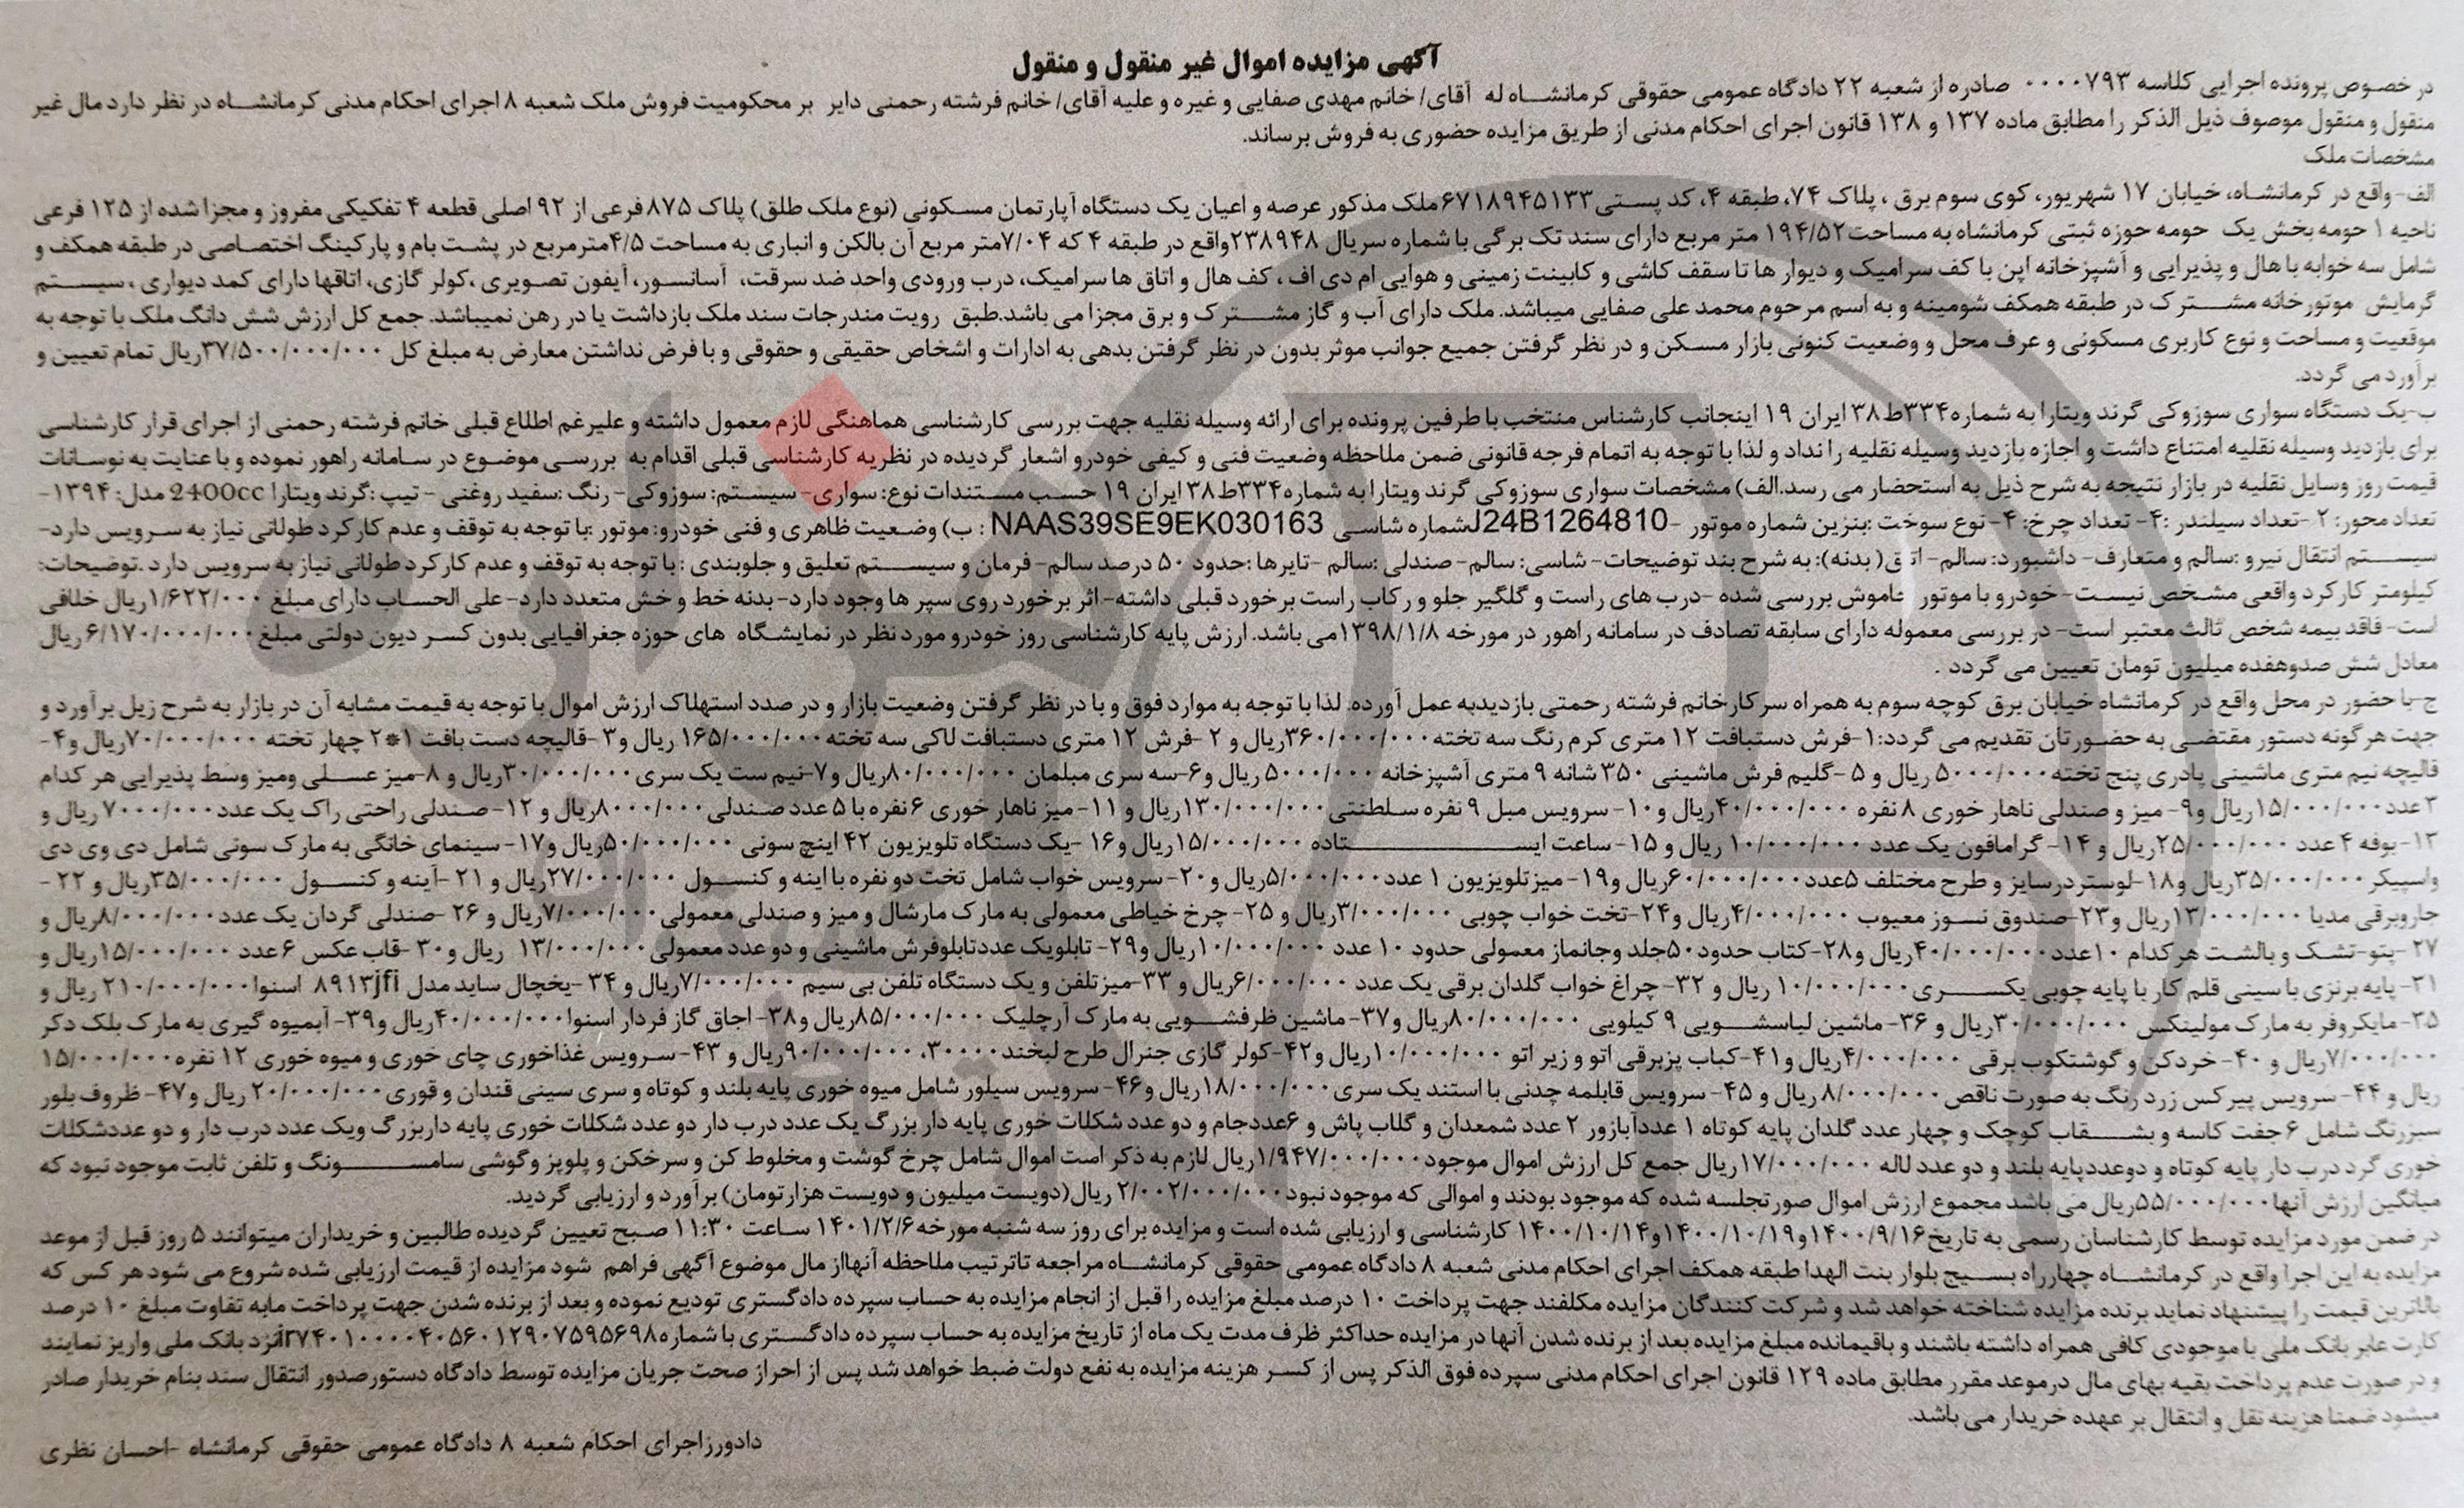 آگهی مزایده اموال غیر منقول و منقول
در خصوص پرونده اجرایی کلاسه ۰۰۰۰۷۹۳ صادره از شعبه ۲۲ دادگاه عمومی حقوقی کرمانشاه له آقای/ خانم مهدی صفایی و غیره و علیه آقای/ خانم فرشته رحمنی دایر بر محکومیت فروش ملک شعبه ۸ اجرای احکام مدنی کرمانشاه در نظر دارد مال غیر
منقول و منقول موصوف ذیل الذکر را مطابق ماده ۱۳۷ و ۱۳۸ قانون اجرای احکام مدنی از طریق مزایده حضوری به فروش برساند.
مشخصات ملک
الف-واقع در کرمانشاه، خیابان ۱۷ شهریور، کوی سوم برق ، پلاک ۷۴، طبقه ۴، کد پستی۶۷۱۸۹۴۵۱۳۳ملک مذکور عرصه و اعیان یک دستگاه آپارتمان مسکونی (نوع ملک طلق) پلاک ۸۷۵ فرعی از ۹۲ اصلی قطعه ۴ تفکیکی مفروز و مجزا شده از ۱۲۵ فرعی
ناحیه ۱ حومه بخش یک حومه حوزه ثبتی کرمانشاه به مساحت۱۹۴/۵۲ متر مربع دارای سند تک برگی با شماره سریال ۲۳۸۹۴۸واقع در طبقه ۴ که ۷/۰۴متر مربع آن بالکن و انباری به مساحت ۴/۵مترمربع در پشت بام و پارکینگ اختصاصی در طبقه همکف و
شامل سه خوابه با هال و پذیرایی و آشپزخانه اپن با کف سرامیک و دیوار ها تا سقف کاشی و کابینت زمینی و هوایی ام دی اف ، کف هال و اتاق ها سرامیک، درب ورودی واحد ضد سرقت، آسانسور، آیفون تصویری ،کولر گازی، اتاقها دارای کمد دیواری ، سیستم
گرمایش موتورخانه مشترک در طبقه همکف شومینه و به اسم مرحوم محمد علی صفایی میباشد. ملک دارای آب و گاز مشترک و برق مجزا می باشد.طبق رویت مندرجات سند ملک بازداشت یا در رهن نمیباشد. جمع کل ارزش شش دانگ ملک با توجه به
موقعیت و مساحت و نوع کاربری مسکونی و عرف محل و وضعیت کنونی بازار مسکن و در نظر گرفتن جمیع جوانب موثر بدون در نظر گرفتن بدهی به ادارات و اشخاص حقیقی و حقوقی و با فرض نداشتن معارض به مبلغ کل ۳۷/۵۰۰/۰۰۰/۰۰۰ریال تمام تعیین و
برآورد می گردد.
ب-یک دستگاه سواری سوزوکی گرند ویتارا به شماره۳۳۴ط۳۸ ایران ۱۹ اینجانب کارشناس منتخب با طرفین پرونده برای ارائه وسیله نقلیه جهت بررسی کارشناسی هماهنگی لازم معمول داشته و علیرغم اطلاع قبلی خانم فرشته رحمنی از اجرای قرار کارشناسی
برای بازدید وسیله نقلیه امتناع داشت و اجازه بازدید وسیله نقلیه را نداد و لذا با توجه به اتمام فرجه قانونی ضمن ملاحظه وضعیت فنی و کیفی خودرو اشعار گردیده در نظریه کارشناسی قبلی اقدام به بررسی موضوع در سامانه راهور نموده و با عنایت به نوسانات
قیمت روز وسایل نقلیه در بازار نتیجه به شرح ذیل به استحضار می رسد.الف) مشخصات سواری سوزوکی گرند ویتارا به شماره۳۳۴ط۳۸ ایران ۱۹ حسب مستندات نوع: سواری- سیستم: سوزوکی- رنگ :سفید روغنی - تیپ :گرند ویتارا 2400cc مدل: ۱۳۹۴-
تعداد محور: ۲ -تعداد سیلندر :۴- تعداد چرخ: ۴- نوع سوخت :بنزین شماره موتور -J24B1264810شماره شاسی NAAS39SE9EK030163 : ب) وضعیت ظاهری و فنی خودرو: موتور :با توجه به توقف و عدم کارکرد طولانی نیاز به سرویس دارد-
سیستم انتقال نیرو :سالم و متعارف- داشبورد: سالم- اتاق( بدنه): به شرح بند توضیحات- شاسی: سالم- صندلی :سالم -تایرها :حدود ۵۰ درصد سالم- فرمان و سیستم تعلیق و جلوبندی : با توجه به توقف و عدم کارکرد طولانی نیاز به سرویس دارد .توضیحات:
کیلومتر کارکرد واقعی مشخص نیست- خودرو با موتور خاموش بررسی شده -درب های راست و گلگیر جلو و رکاب راست برخورد قبلی داشته- اثر برخورد روی سپر ها وجود دارد- بدنه خط و خش متعدد دارد- علی الحساب دارای مبلغ ۱/۶۲۲/۰۰۰ریال خلافی
است- فاقد بیمه شخص ثالث معتبر است- در بررسی معموله دارای سابقه تصادف در سامانه راهور در مورخه ۱۳۹۸/۱/۸می باشد. ارزش پایه کارشناسی روز خودرو مورد نظر در نمایشگاه های حوزه جغرافیایی بدون کسر دیون دولتی مبلغ ۶/۱۷۰/۰۰۰/۰۰۰ ریال
معادل شش صدوهفده میلیون تومان تعیین می گردد .
ج-با حضور در محل واقع در کرمانشاه خیابان برق کوچه سوم به همراه سرکارخانم فرشته رحمتی بازدیدبه عمل آورده. لذا با توجه به موارد فوق و با در نظر گرفتن وضعیت بازار و در صدد استهلاک ارزش اموال با توجه به قیمت مشابه آن در بازار به شرح زیل برآورد و
جهت هرگونه دستور مقتضی به حضورتان تقدیم می گردد:۱-فرش دستبافت ۱۲ متری کرم رنگ سه تخته۳۶۰/۰۰۰/۰۰۰ریال و ۲ -فرش ۱۲ متری دستبافت لاکی سه تخته۱۶۵/۰۰۰/۰۰۰ ریال و۳ -قالیچه دست بافت ۱*۲ چهار تخته ۷۰/۰۰۰/۰۰۰ریال و۴-
قالیچه نیم متری ماشینی پادری پنج تخته۵۰۰۰/۰۰۰ ریال و ۵ -گلیم فرش ماشینی ۳۵۰ شانه ۹ متری آشپزخانه ۵۰۰۰/۰۰۰ ریال و۶-سه سری مبلمان ۸۰/۰۰۰/۰۰۰ریال و۷-نیم ست یک سری ۳۰/۰۰۰/۰۰۰ریال و ۸-میز عسلی ومیز وسط پذیرایی هر کدام
۳عدد۱۵/۰۰۰/۰۰۰ریال و۹- میز و صندلی ناهار خوری ۸ نفره ۴۰/۰۰۰/۰۰۰ریال و۱۰- سرویس مبل ۹ نفره سلطنتی ۱۳۰/۰۰۰/۰۰۰ریال و ۱۱- میز ناهار خوری ۶نفره با ۵ عدد صندلی ۸۰۰۰/۰۰۰ریال و ۱۲- صندلی راحتی راک یک عدد۷۰۰۰/۰۰۰ ریال و
۱۳- بوفه ۴ عدد ۲۵/۰۰۰/۰۰۰ریال و ۱۴- گرامافون یک عدد ۱۰/۰۰۰/۰۰۰ ریال و ۱۵- ساعت ایستاده ۱۵/۰۰۰/۰۰۰ریال و۱۶ -یک دستگاه تلویزیون ۴۲ اینچ سونی ۵۰/۰۰۰/۰۰۰ریال و۱۷- سینمای خانگی به مارک سونی شامل دی وی دی
واسپیکر ۳۵/۰۰۰/۰۰۰ریال و۱۸-لوستردرسایز و طرح مختلف ۵عدد۶۰/۰۰۰/۰۰۰ریال و۱۹- میزتلویزیون ۱ عدد۵/۰۰۰/۰۰۰ریال و۲۰- سرویس خواب شامل تخت دو نفره با اینه و کنسول ۲۷/۰۰۰/۰۰۰ریال و ۲۱ -آینه و کنسول ۳۵/۰۰۰/۰۰۰ریال و ۲۲ -
جاروبرقی مدیا ۱۳/۰۰۰/۰۰۰ریال و۲۳-صندوق نسوز معیوب ۴/۰۰۰/۰۰۰ریال و۲۴-تخت خواب چوبی ۳/۰۰۰/۰۰۰ریال و ۲۵- چرخ خیاطی معمولی به مارک مارشال و میز و صندلی معمولی ۷/۰۰۰/۰۰۰ریال و ۲۶ -صندلی گردان یک عدد۸/۰۰۰/۰۰۰ریال و
۲۷ -پتو-تشک و بالشت هرکدام ۱۰عدد۴۰/۰۰۰/۰۰۰ریال و۲۸-کتاب حدود۵۰جلد وجانماز معمولی حدود ۱۰ عدد ۱۰/۰۰۰/۰۰۰ریال و۲۹- تابلویک عددتابلوفرش ماشینی و دو عدد معمولی ۱۳/۰۰۰/۰۰۰ ریال و۳۰ -قاب عکس ۶ عدد ۱۵/۰۰۰/۰۰۰ریال و
۳۱- پایه برنزی با سینی قلم کار با پایه چوبی یکسری ۱۰/۰۰۰/۰۰۰ ریال و ۳۲- چراغ خواب گلدان برقی یک عدد ۶/۰۰۰/۰۰۰ریال و ۳۳-میزتلفن و یک دستگاه تلفن بی سیم ۷/۰۰۰/۰۰۰ریال و ۳۴ -یخچال ساید مدل ۸۹۱۳jfi اسنوا۲۱۰/۰۰۰/۰۰۰ ریال و
۳۵- مایکروفر به مارک مولینکس ۳۰/۰۰۰/۰۰۰ریال و ۳۶- ماشین لباسشویی ۹ کیلویی ۸۰/۰۰۰/۰۰۰ریال و۳۷- ماشین ظرفشویی به مارک آرچلیک ۸۵/۰۰۰/۰۰۰ریال و۳۸- اجاق گاز فردار اسنوا ۴۰/۰۰۰/۰۰۰ریال و۳۹- آبمیوه گیری به مارک بلک دکر
۷/۰۰۰/۰۰۰ریال و ۴۰- خردکن و گوشتکوب برقی ۴/۰۰۰/۰۰۰ریال و۴۱- کباب پزبرقی اتو و زیر اتو ۱۰/۰۰۰/۰۰۰ریال و۴۲-کولر گازی جنرال طرح لبخند۳۰۰۰۰، ۹۰/۰۰۰/۰۰۰ریال و ۴۳- سرویس غذاخوری چای خوری و میوه خوری ۱۲ نفره ۱۵/۰۰۰/۰۰۰
ریال و ۴۴- سرویس پیرکس زرد رنگ به صورت ناقص ۸/۰۰۰/۰۰۰ ریال و ۴۵- سرویس قابلمه چدنی با استند یک سری ۱۸/۰۰۰/۰۰۰ریال و۴۶- سرویس سیلور شامل میوه خوری پایه بلند و کوتاه و سری سینی قندان و قوری ۲۰/۰۰۰/۰۰۰ ریال و۴۷- ظروف بلور
سبزرنگ شامل ۶ جفت کاسه و بشقاب کوچک و چهار عدد گلدان پایه کوتاه ۱ عددآبازور ۲ عدد شمعدان و گلاب پاش و ۶عددجام و دو عدد شکلات خوری پایه دار بزرگ یک عدد درب دار دو عدد شکلات خوری پایه داربزرگ ویک عدد درب دار و دو عددشکلات
خوری گرد درب دار پایه کوتاه و دوعددپایه بلند و دو عدد لاله ۱۷/۰۰۰/۰۰۰ریال جمع کل ارزش اموال موجود۱/۹۴۷/۰۰۰/۰۰۰ریال لازم به ذکر است اموال شامل چرخ گوشت و مخلوط کن و سرخکن و پلوپز وگوشی سامسونگ و تلفن ثابت موجود نبود که
میانگین ارزش آنها۵۵/۰۰۰/۰۰۰ریال می باشد مجموع ارزش اموال صورتجلسه شده که موجود بودند و اموالی که موجود نبود۲/۰۰۲/۰۰۰/۰۰۰ ریال(دویست میلیون و دویست هزارتومان) برآورد و ارزیابی گردید.
در ضمن مورد مزایده توسط کارشناسان رسمی به تاریخ۱۴۰۰/۹/۱۶و۱۴۰۰/۱۰/۱۹و۱۴۰۰/۱۰/۱۴ کارشناسی و ارزیابی شده است و مزایده برای روز سه شنبه مورخه۱۴۰۱/۲/۶ ساعت ۱۱:۳۰ صبح تعیین گردیده طالبین و خریداران میتوانند ۵ روز قبل از موعد
مزایده به این اجرا واقع در کرمانشاه چهارراه بسیج بلوار بنت الهدا طبقه همکف اجرای احکام مدنی شعبه ۸ دادگاه عمومی حقوقی کرمانشاه مراجعه تاترتیب ملاحظه آنهااز مال موضوع آگهی فراهم شود مزایده از قیمت ارزیابی شده شروع می شود هر کس که
بالاترین قیمت را پیشنهاد نماید برنده مزایده شناخته خواهد شد و شرکت کنندگان مزایده مکلفند جهت پرداخت ۱۰ درصد مبلغ مزایده را قبل از انجام مزایده به حساب سپرده دادگستری تودیع نموده و بعد از برنده شدن جهت پرداخت مابه تفاوت مبلغ ۱۰ درصد
کارت عابر بانک ملی با موجودی کافی همراه داشته باشند و باقیمانده مبلغ مزایده بعد از برنده شدن آنها در مزایده حداکثر ظرف مدت یک ماه از تاریخ مزایده به حساب سپرده دادگستری با شماره نزد بانک ملی واریز نمایند
و در صورت عدم پرداخت بقیه بهای مال درموعد مقرر مطابق ماده ۱۲۹ قانون اجرای احکام مدنی سپرده فوق الذکر پس از کسر هزینه مزایده به نفع دولت ضبط خواهد شد پس از احراز صحت جریان مزایده توسط دادگاه دستورصدور انتقال سند بنام خریدار صادر
میشود ضمنا هزینه نقل و انتقال بر عهده خریدار می باشد.
دادورزاجرای احکام شعبه ۸ دادگاه عمومی حقوقی کرمانشاه -احسان نظری